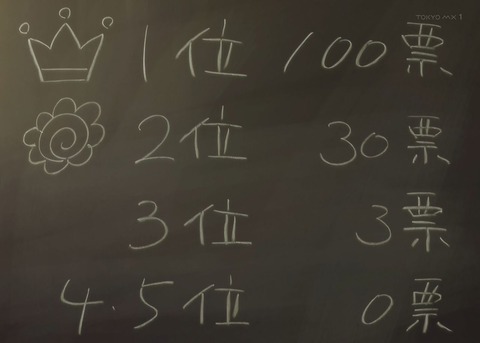 TOKYO MX 1
1位 100票
2位 30票
3位 3票
4.5位 0票